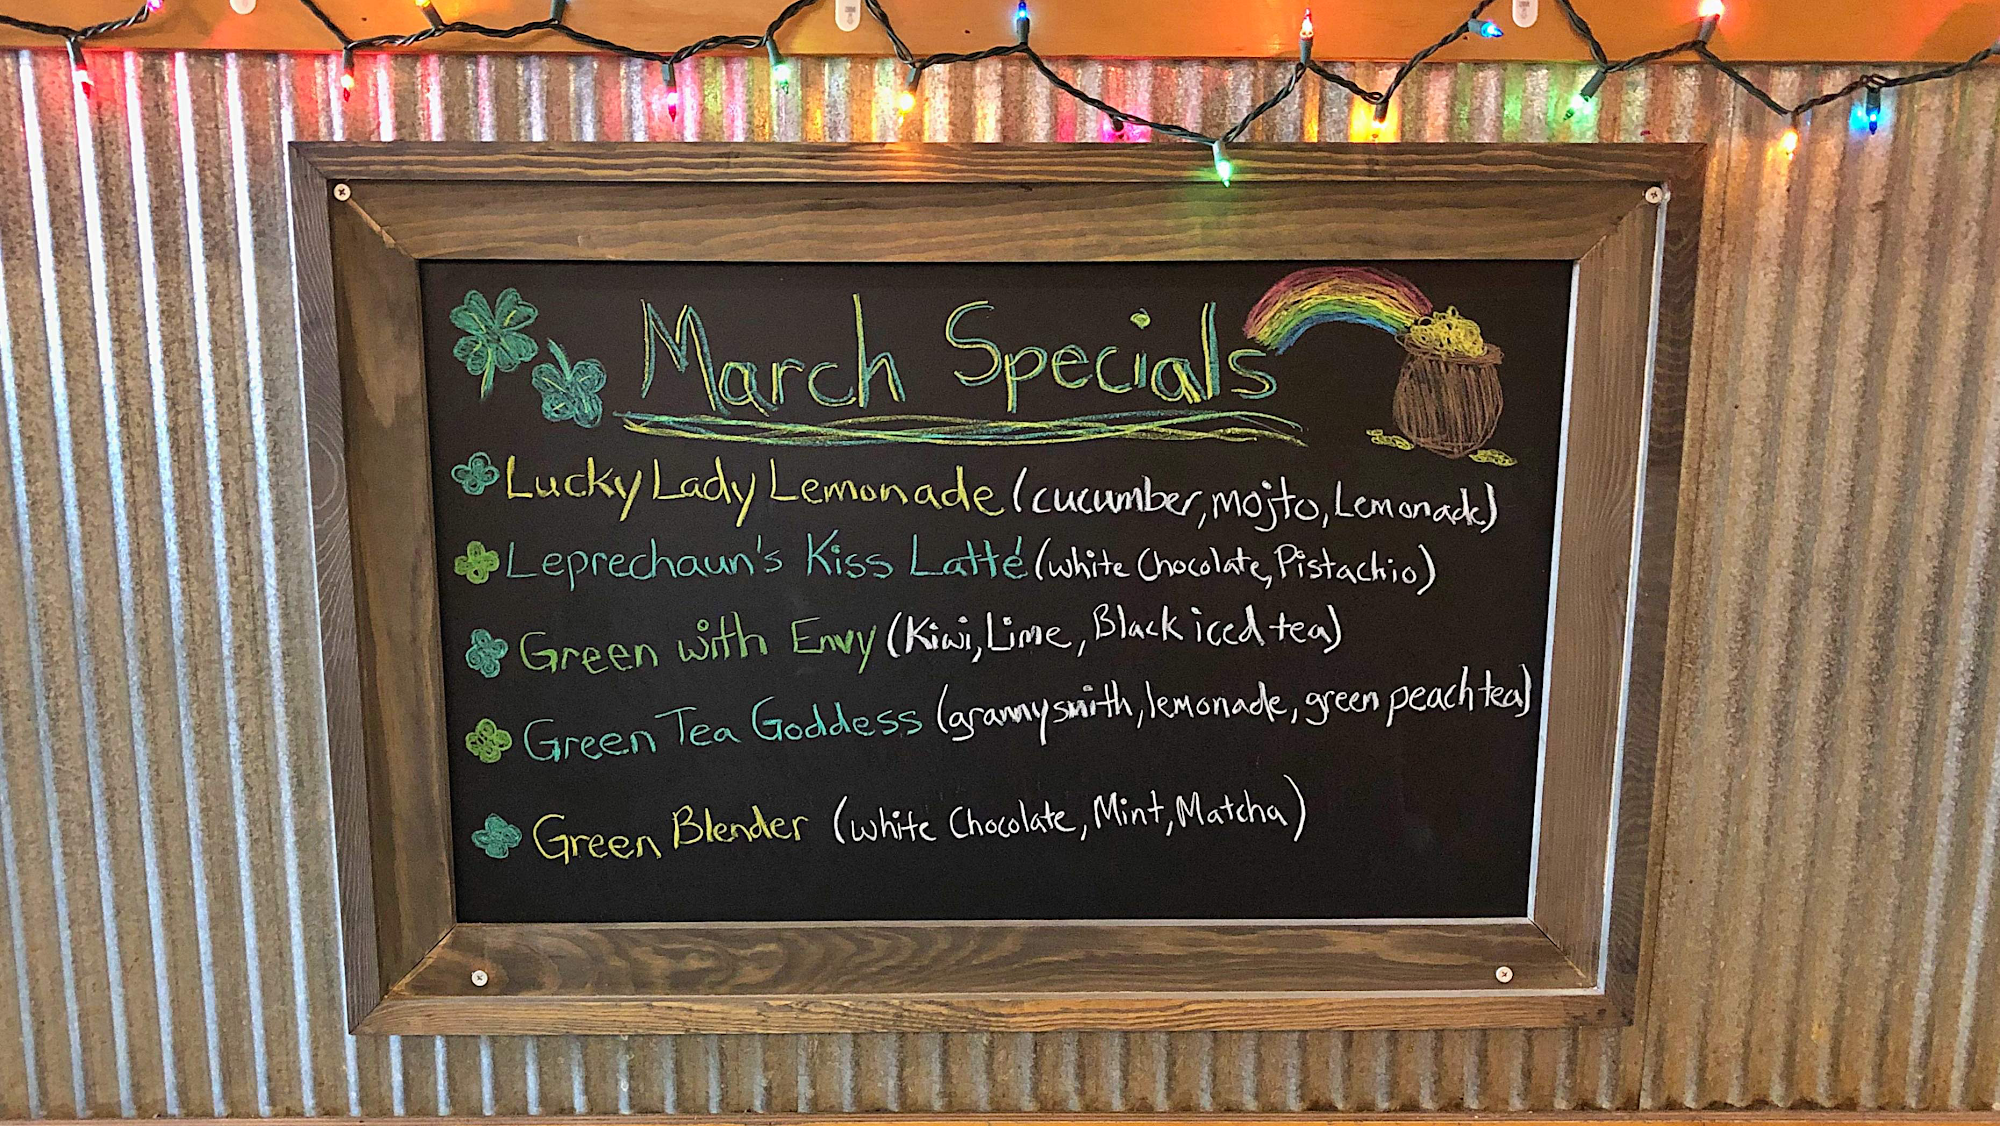 March Specials
Lucky Lady Lemonade (cucumber, mojto, Lemonade)
Leprechaun's Kiss Latté (white Chocolate, Pistachio)
Green with Envy (Kiwi, Lime, Black iced tea)
Green Tea Goddess (grannysmith, lemonade, green peach tea)
Green Blender (white Chocolate, Mint, Matcha)